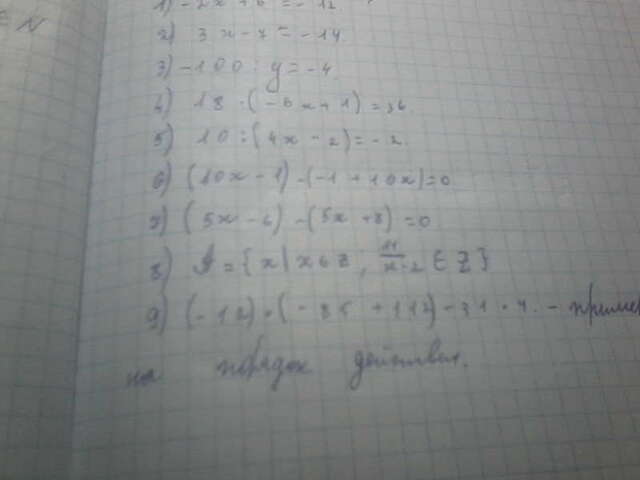 1) -2x + 6 = -12
2) 3x - 7 = -14.
3) -100 : y = -4.
4) 18 : (-6x + 1) = 36.
5) 10 : (4x - 2) = -2.
6) (10x - 1) - (-1 + 10x) = 0
7) (5x - 6) - (5x + 8) = 0
8) A = {x | x ∈ Z, 11/x-2 ∈ Z}
9) (-12) · + 112) - 31 · 4. - пример
на порядок действия.